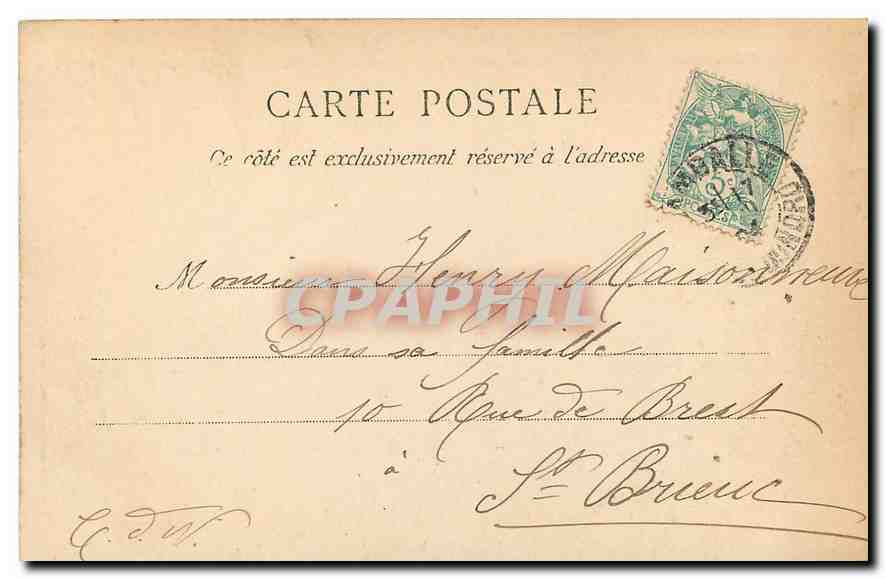 CARTE POSTALE
Ce côté est exclusivement réservé à l'adresse
5c
POSTES
Monsieur Henry Maisonneuve
CPAPHIL
Dans sa famille
10 Rue de Brest
à
St Brieuc
C. d. N.